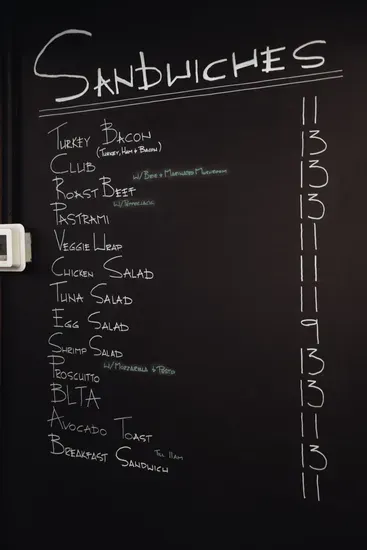 SANDWICHES
TURKEY BACON 11
CLUB (TURKEY, HAM & BACON) 13
ROAST BEEF W/ BRIE & MARINATED MUSHROOM 13
PASTRAMI W/ PEPPERJACK 13
VEGGIE WRAP 11
CHICKEN SALAD 11
TUNA SALAD 11
EGG SALAD 9
SHRIMP SALAD 13
PROSCUITTO W/ MOZZARELLA & PESTO 13
BLTA 11
AVOCADO TOAST 13
BREAKFAST SANDWICH 11AM 11